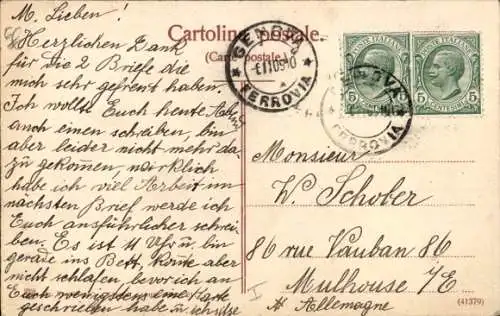 M. Lieben!
Herzlichen Dank
für Die 2 Briefe die
mich sehr gefreut haben.
Ich wollte Euch heute Abend
auch einen schreiben, bin
aber leider nicht mehr da-
zu gekommen, wirklich
habe ich viel Arbeit im
nächsten Brief werde ich
Euch ausführlicher schrei-
ben. Es ist 11 Uhr u. bin
gerade ins Bett, konte aber
nicht schlafen, bevor ich an
Euch wenigstens eine Karte
geschrieben habe
Cartolina postale.
(Carte postale)
GENOVA
FERROVIA
POSTE ITALIANE
CENTESIMI 5
POSTE ITALIANE
5 CENTESIMI 5
GENOVA
FERROVIA
Monsieur
W. Schober
86 rue Vauban 86
Mulhouse i/E
Allemagne
(41379)